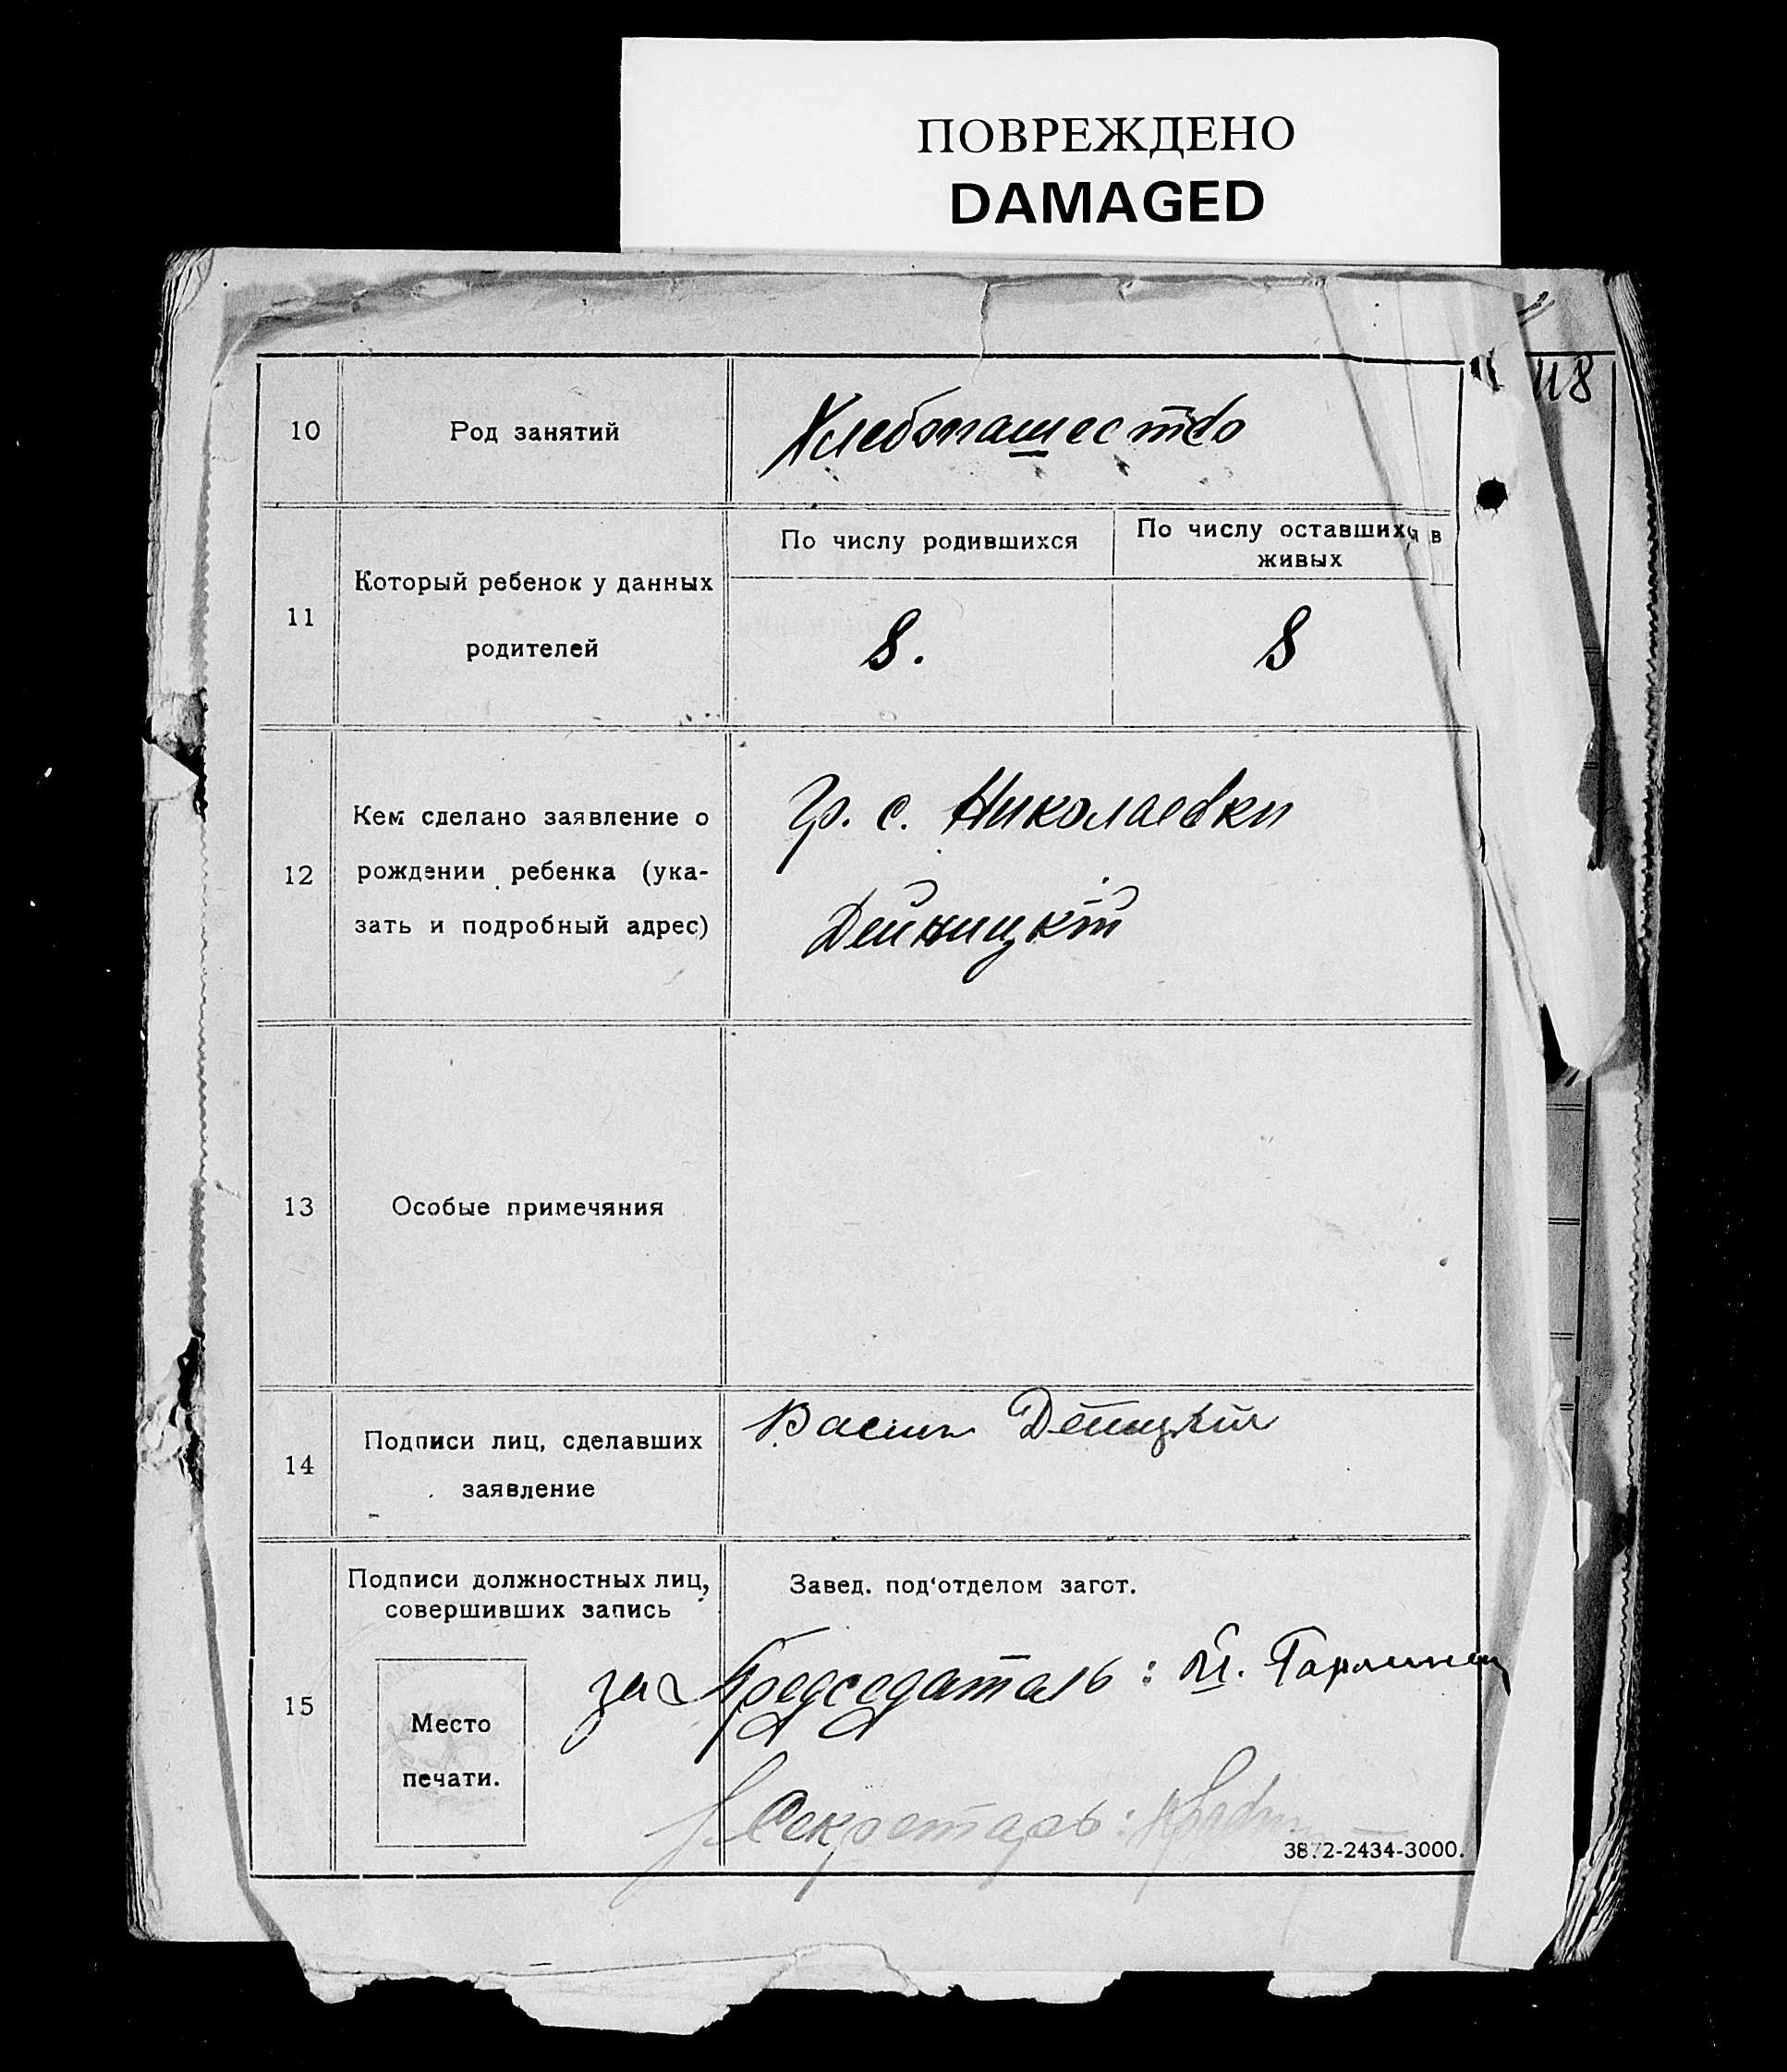 ПОВРЕЖДЕНО
DAMAGED
118
10
Род занятий
Хлебопашество
11
Который ребенок у данных
родителей
По числу родившихся
По числу оставшихся в
живых
8.
8
12
Кем сделано заявление о
рождении ребенка (ука-
зать и подробный адрес)
Гр. с. Николаевки
Дейницкій
13
Особые примечяния
14
Подписи лиц, сделавших
заявление
15
Подписи должностных лиц,
совершивших запись
Завед. под'отделом загст.
за Председатель:
Место
печати.
Секретарь:
3872-2434-3000.